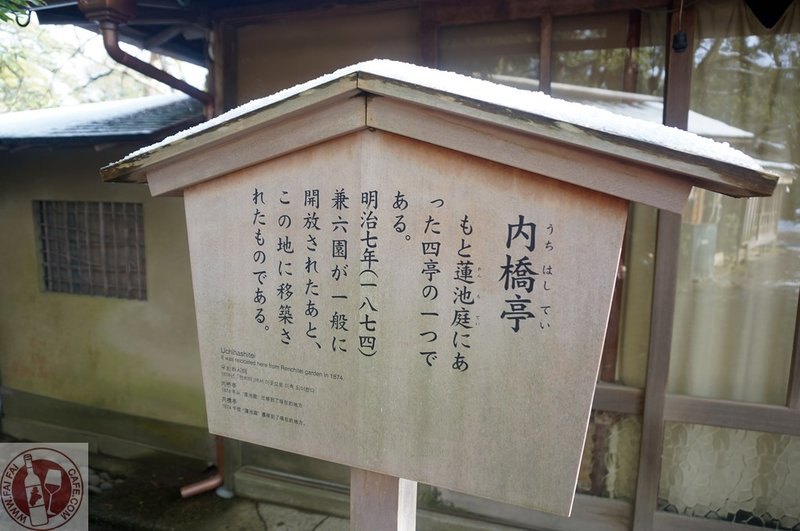 内橋亭
うちはしてい
もと蓮池庭にあ
れんちてい
った四亭の一つで
ある。
明治七年(一八七四)
兼六園が一般に
開放されたあと、
この地に移築さ
れたものである。
Uchihashitei
It was relocated here from Renchitei garden in 1874
内桥亭
内橋亭
WWW.FAI FAI CAFE.COM